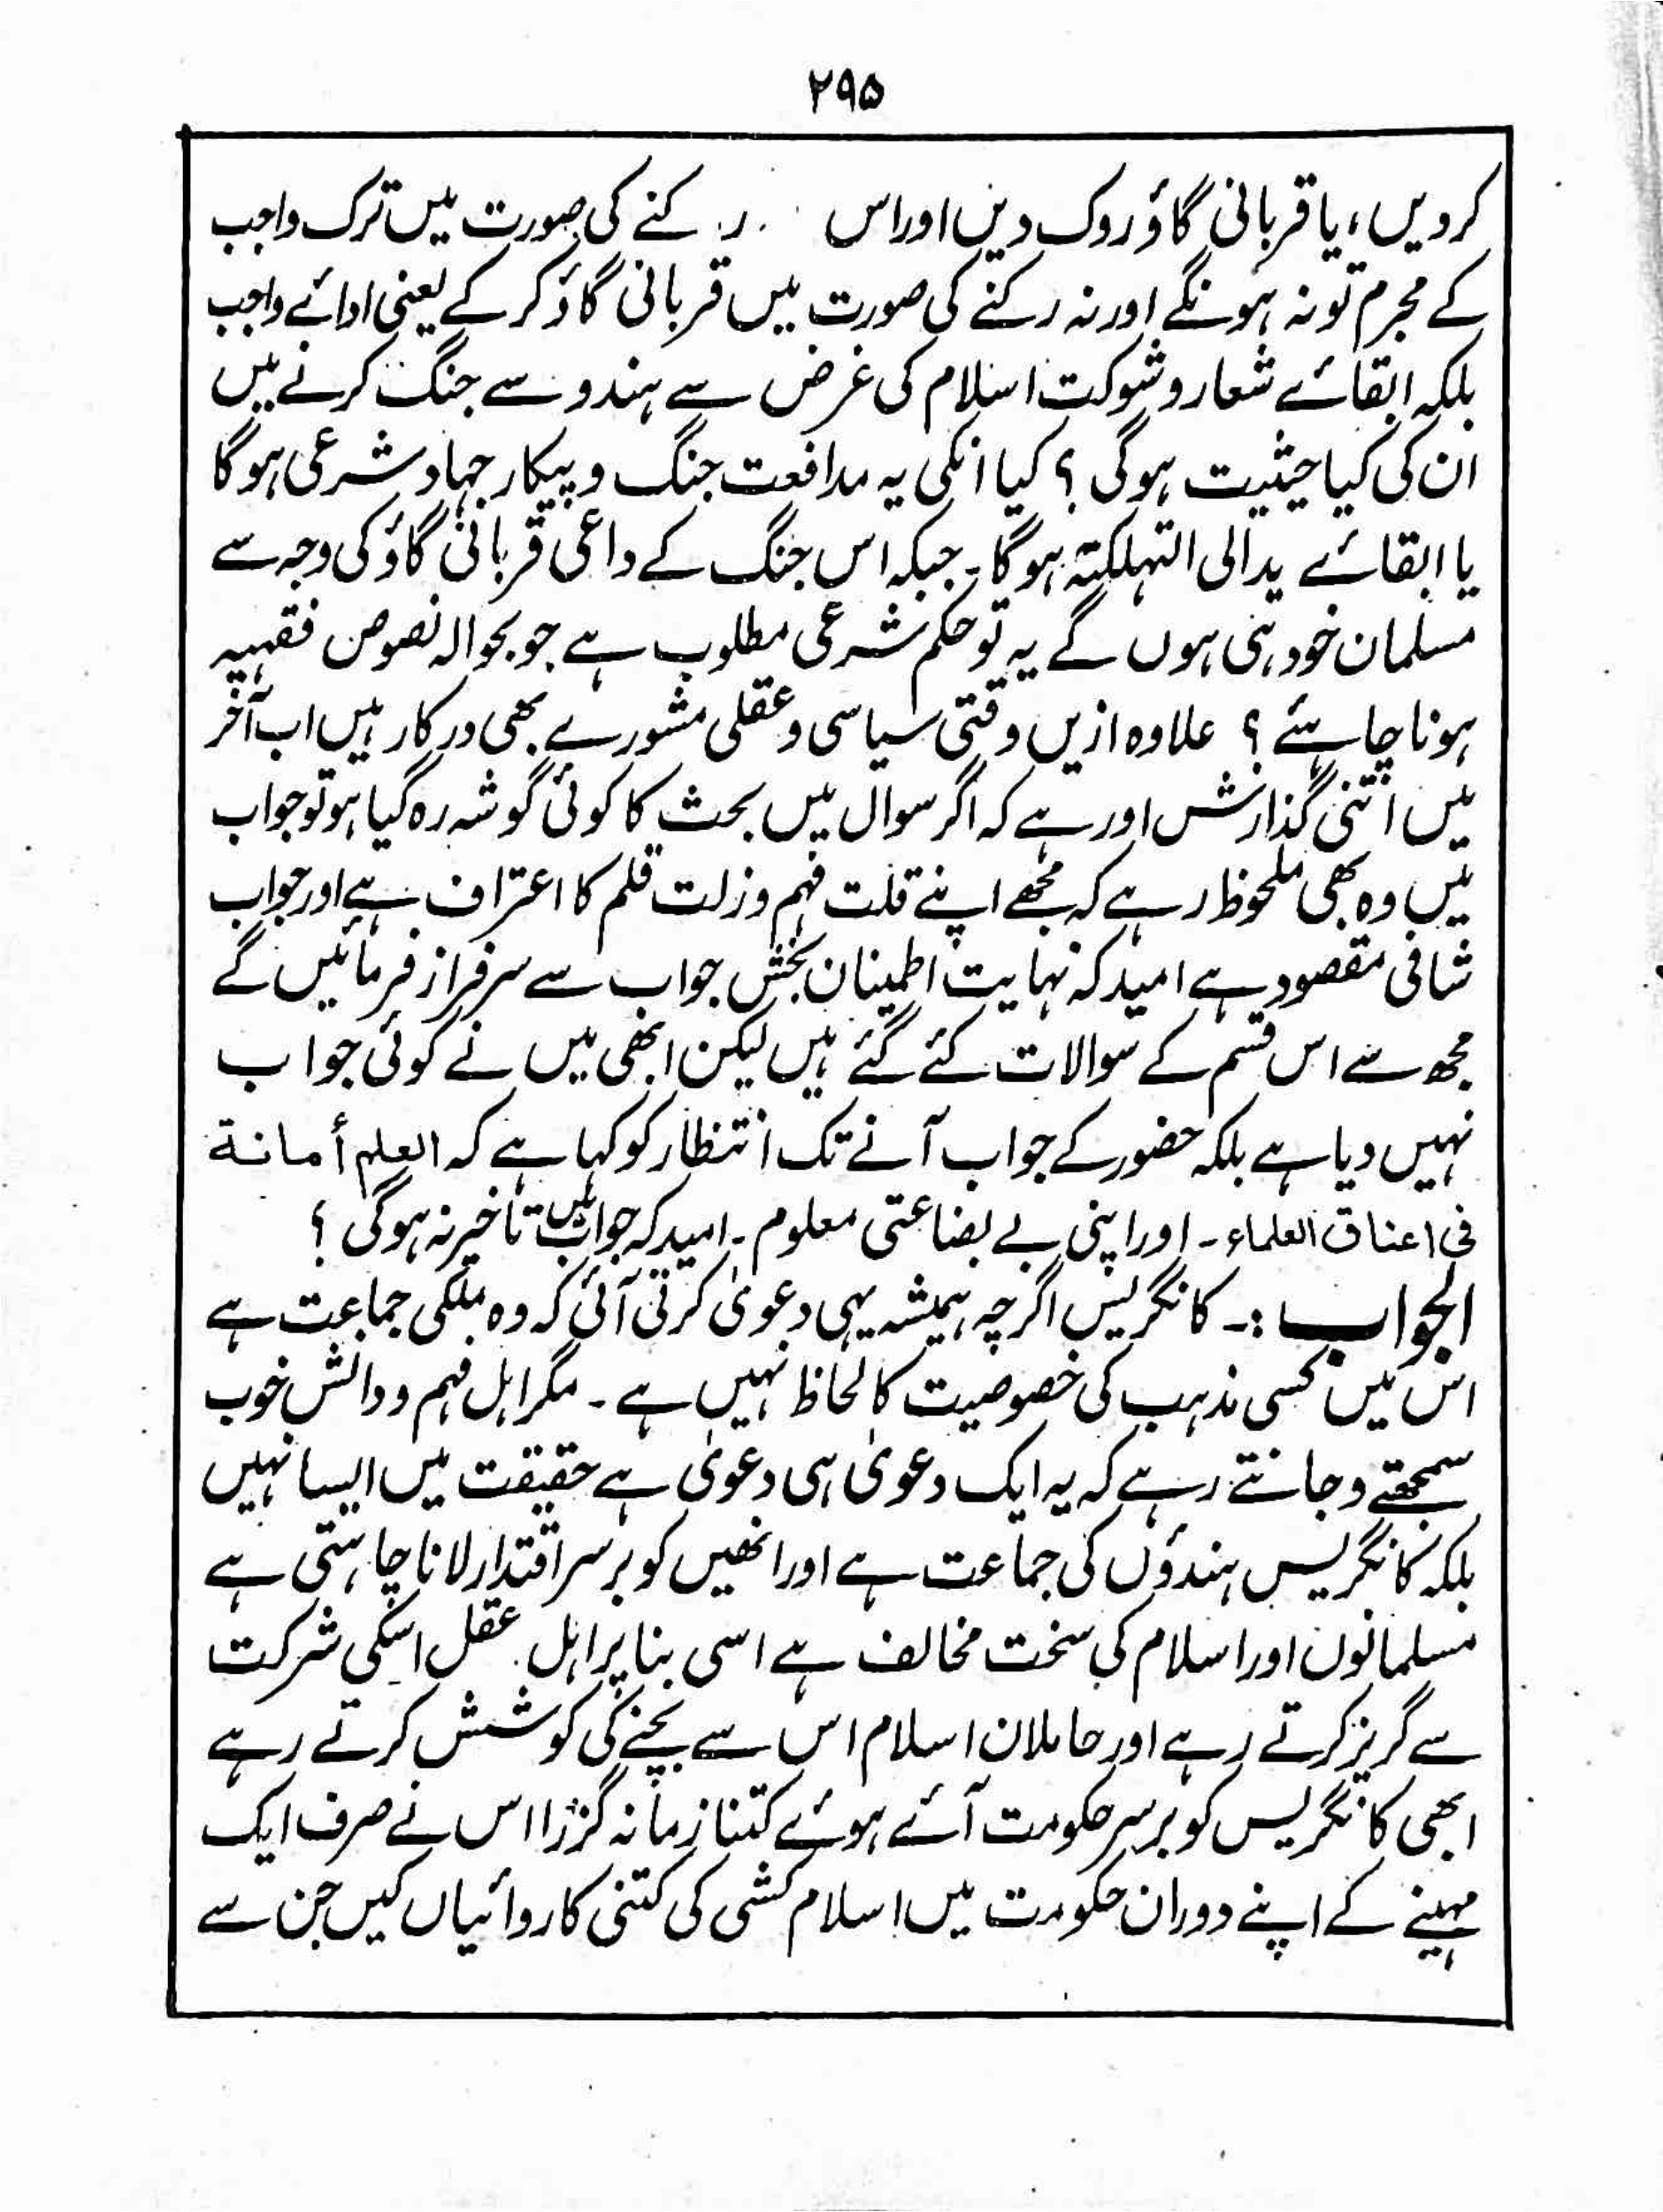 ۲۹۵
کردیں، یا قربانی گاؤ روک دیں اور اس کنے کی صورت میں ترک واجب
کے مجرم تو نہ ہونگے اور نہ رکنے کی صورت میں قربانی گاؤ کر کے یعنی ادائے واجب
بلکہ ابقائے شعار و شوکت اسلام کی غرض سے ہندو سے جنگ کرنے میں
ان کی کیا حیثیت ہوگی ؟ کیا انکی یہ مدافعت جنگ و پیکار جہاد شرعی ہوگا
یا ابقائے یدالی التہلکتہ ہوگا۔ جبکہ اس جنگ کے داعی قربانی گاؤ کی وجہ سے
مسلمان خود ہی ہوں گے یہ تو حکم شرعی مطلوب ہے جو بحوالہ نصوص فقہیہ
ہونا چاہئے ؟ علاوہ ازیں وقتی سیاسی و عقلی مشورے بھی درکار ہیں اب آخر
میں اتنی گذارش اور ہے کہ اگر سوال میں بحث کا کوئی گوشہ رہ گیا ہو تو جواب
میں وہ بھی ملحوظ رہے کہ مجھے اپنے قلت فہم و زلت قلم کا اعتراف ہے اور جواب
شافی مقصود ہے امید کہ نہایت اطمینان بخش جواب سے سرفراز فرمائیں گے
مجھ سے اس قسم کے سوالات کئے گئے ہیں لیکن ابھی میں نے کوئی جواب
نہیں دیا ہے بلکہ حضور کے جواب آنے تک انتظار کو کہا ہے کہ العلم أمانة
فی اعناق العلماء۔ اور اپنی بے بضاعتی معلوم۔ امید کہ جواب میں تاخیر نہ ہوگی ؟
الجواب :۔ کانگریس اگرچہ ہمیشہ یہی دعویٰ کرتی آئی کہ وہ ملکی جماعت ہے
اس میں کسی مذہب کی خصوصیت کا لحاظ نہیں ہے۔ مگر اہل فہم و دانش خوب
سمجھتے و جانتے رہے کہ یہ ایک دعویٰ ہی دعویٰ ہے حقیقت میں ایسا نہیں
بلکہ کانگریس ہندؤں کی جماعت ہے اور انھیں کو برسر اقتدار لانا چاہتی ہے
مسلمانوں اور اسلام کی سخت مخالف ہے اسی بنا پر اہل عقل اسکی شرکت
سے گریز کرتے رہے اور حاملان اسلام اس سے بچنے کی کوشش کرتے رہے
ابھی کانگریس کو برسر حکومت آئے ہوئے کتنا زمانہ گزرا اس نے صرف ایک
مہینے کے اپنے دوران حکومت میں اسلام کشی کی کتنی کاروائیاں کیں جن سے